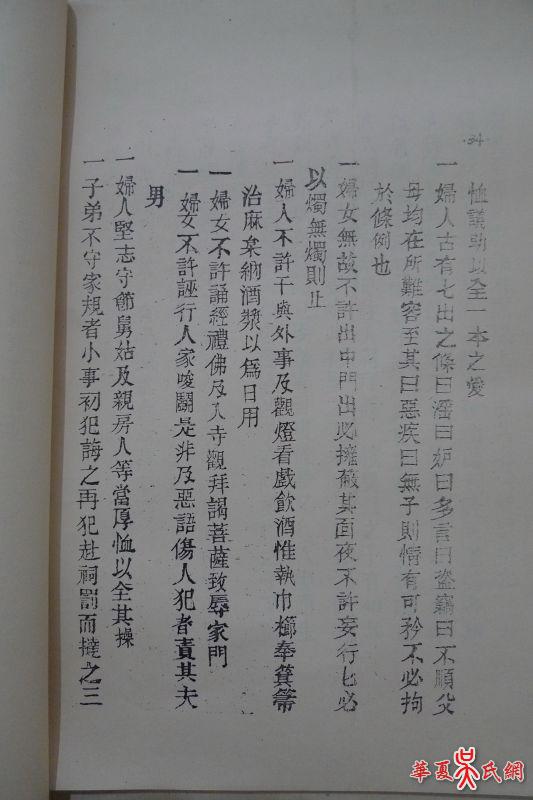 34
恤議助以全一本之愛
一 婦人古有七出之條曰淫曰妒曰多言曰盜竊曰不順父
母均在所難容至其曰惡疾曰無子則情有可矜不必拘
於條例也
一 婦女無故不許出中門出必擁蔽其面夜不許妄行匕必
以燭無燭則止
一 婦人不許干與外事及觀燈看戲飲酒惟執巾櫛奉箕箒
治麻枲納酒漿以爲日用
一 婦女不許誦經禮佛及入寺觀拜謁菩薩致辱家門
一 婦女不許誣行人家唆鬬是非及惡語傷人犯者責其夫
男
一 婦人堅志守節舅姑及親房人等當厚恤以全其操
一 子弟不守家規者小事初犯誨之再犯赴祠罰而撻之三
華夏吴氏網